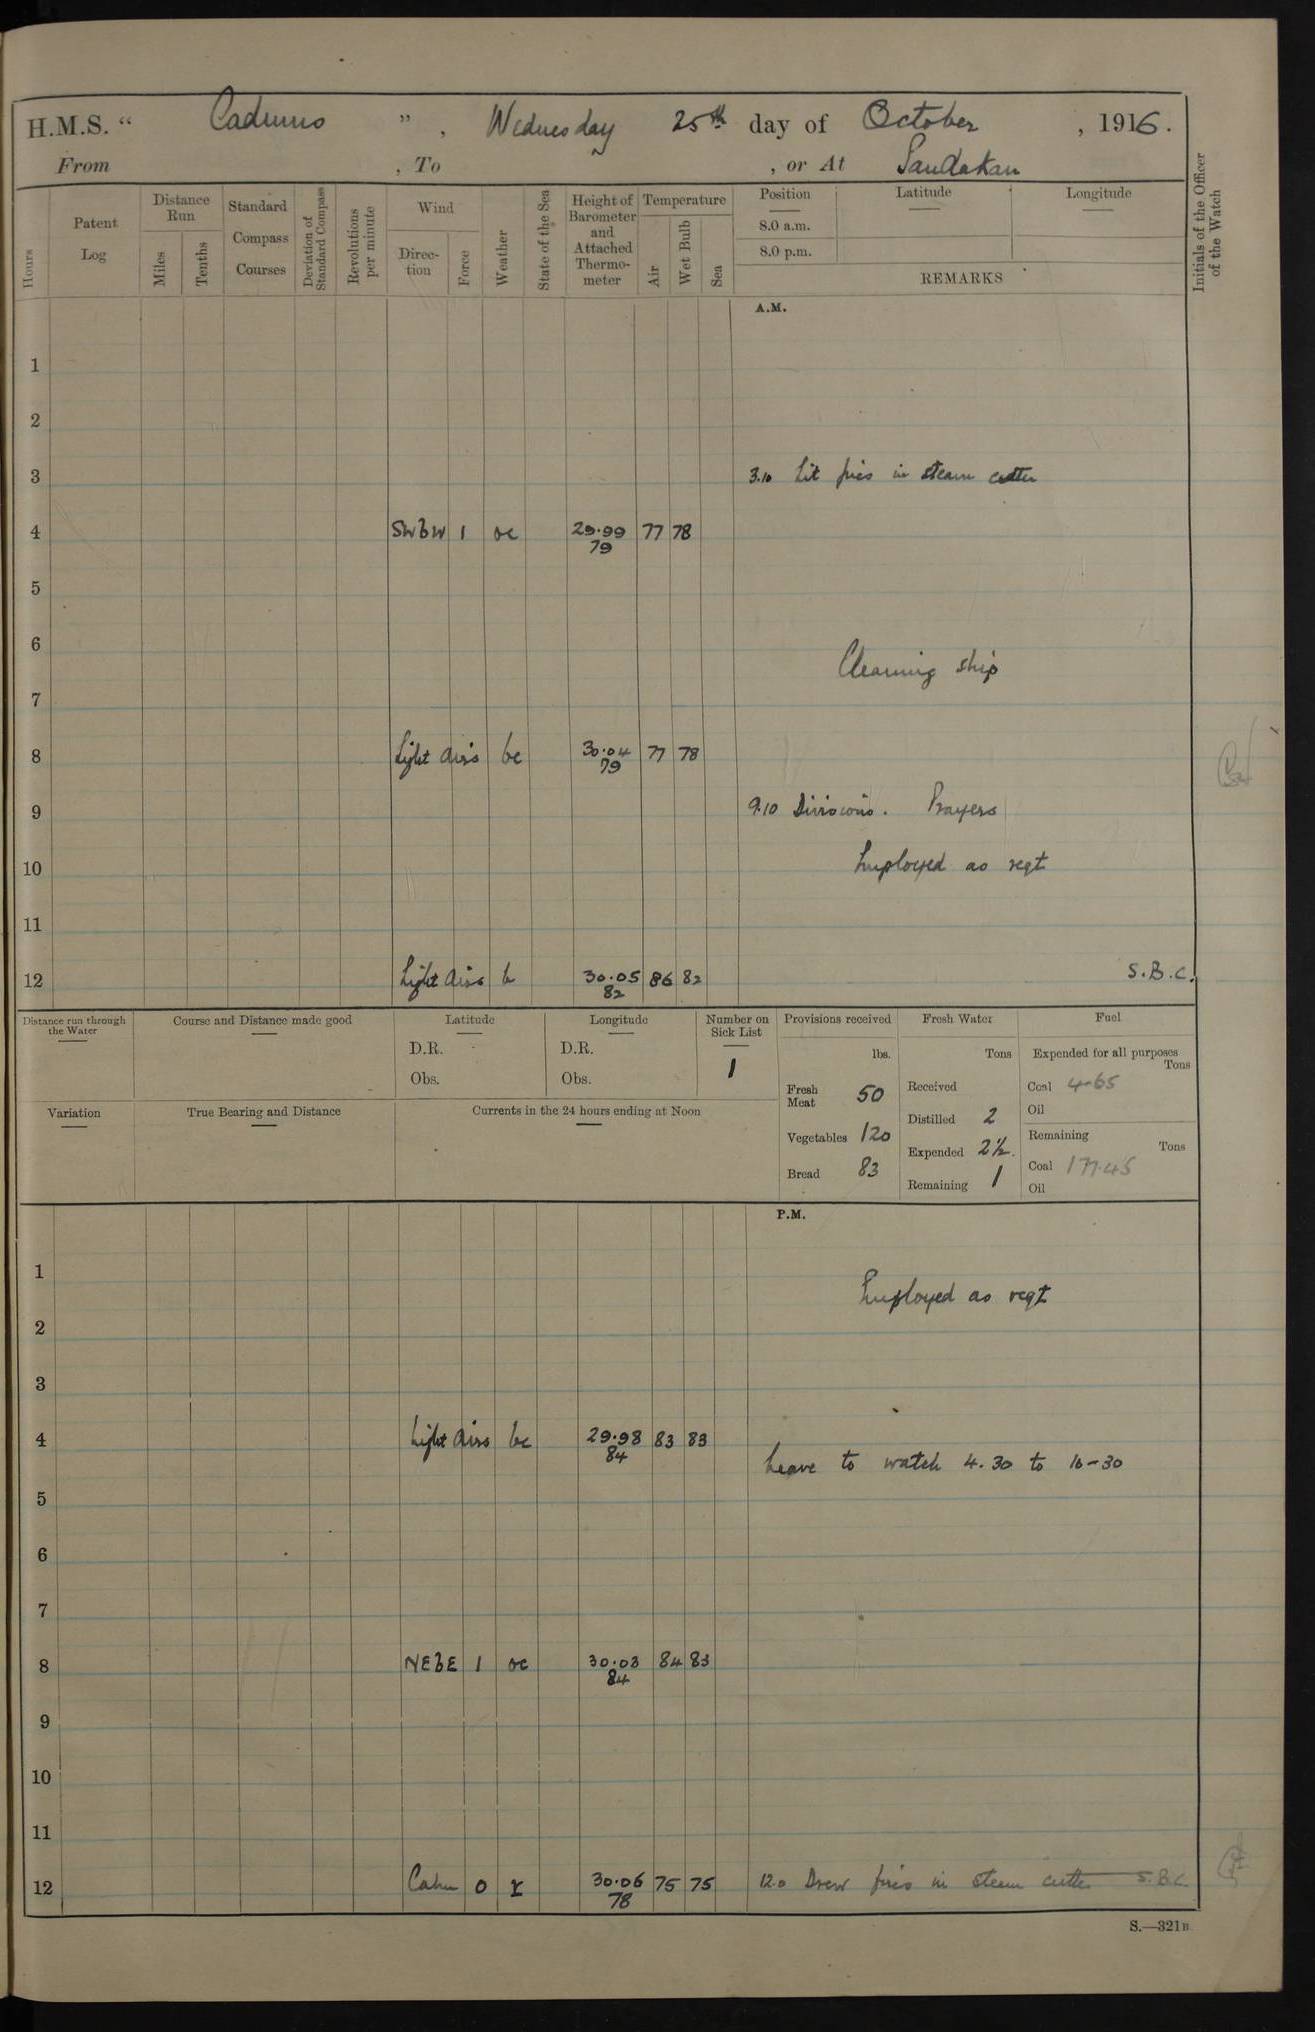 H.M.S. " Cadmus ", Wednesday 25th day of October, 1916.
From , To , or At Sandakan
Hours
Patent Log
Distance Run
Miles
Tenths
Standard Compass Courses
Deviation of Standard Compass
Revolutions per minute
Wind
Direction
Force
Weather
State of the Sea
Height of Barometer and Attached Thermometer
Temperature
Air
Wet Bulb
Sea
Position
Latitude
Longitude
8.0 a.m.
8.0 p.m.
REMARKS
Initials of the Officer of the Watch
A.M.
1
2
3 3.10 Lit fires in steam cutter
4 SWbW 1 oc 29.99 77 78
79
5
6
Cleaning ship
7
8 Light airs bc 30.04 77 78
79
9 9.10 Divisions. Prayers
10 Employed as reqt
11
12 Light airs b 30.05 86 82 S.B.C.
82
Distance run through the Water
Course and Distance made good
Latitude
D.R.
Obs.
Longitude
D.R.
Obs.
Number on Sick List
1
Provisions received
lbs.
Fresh Meat 50
Vegetables 120
Bread 83
Fresh Water
Tons
Received
Distilled 2
Expended 2½
Remaining 1
Fuel
Expended for all purposes
Tons
Coal 4.65
Oil
Remaining
Tons
Coal 177.45
Oil
Variation
True Bearing and Distance
Currents in the 24 hours ending at Noon
P.M.
1 Employed as reqt
2
3
4 Light airs bc 29.98 83 83
84
Leave to watch 4.30 to 10-30
5
6
7
8 NEbE 1 oc 30.03 84 83
84
9
10
11
12 Calm 0 r 30.06 75 75 12.0 Drew fires in steam cutter S.B.C.
78
S.—321B